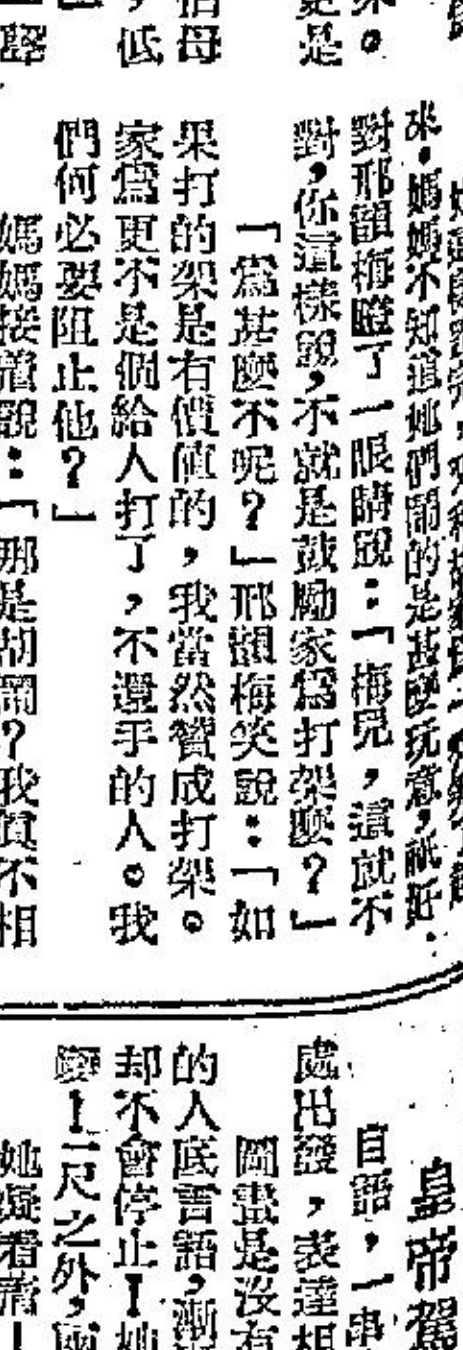 來。媽媽不知道她們鬧的是甚麼玩意,祇好
對邢韻梅瞪了一眼睛說:「梅兒,這就不
對,你這樣說,不就是鼓勵家為打架麼?」
「為甚麼不呢?」邢韻梅笑說:「如
果打的架是有價值的,我當然贊成打架。
家為更不是個給人打了,不還手的人。我
們何必要阻止他?」
媽媽接着說:「那是胡鬧?我真不相
更是
指母
,低
皇帝駕
自語,一串
處出發,表達相
圖畫是沒有
的人底言語,漸
却不會停止!她
麼!二尺之外,兩
她凝着